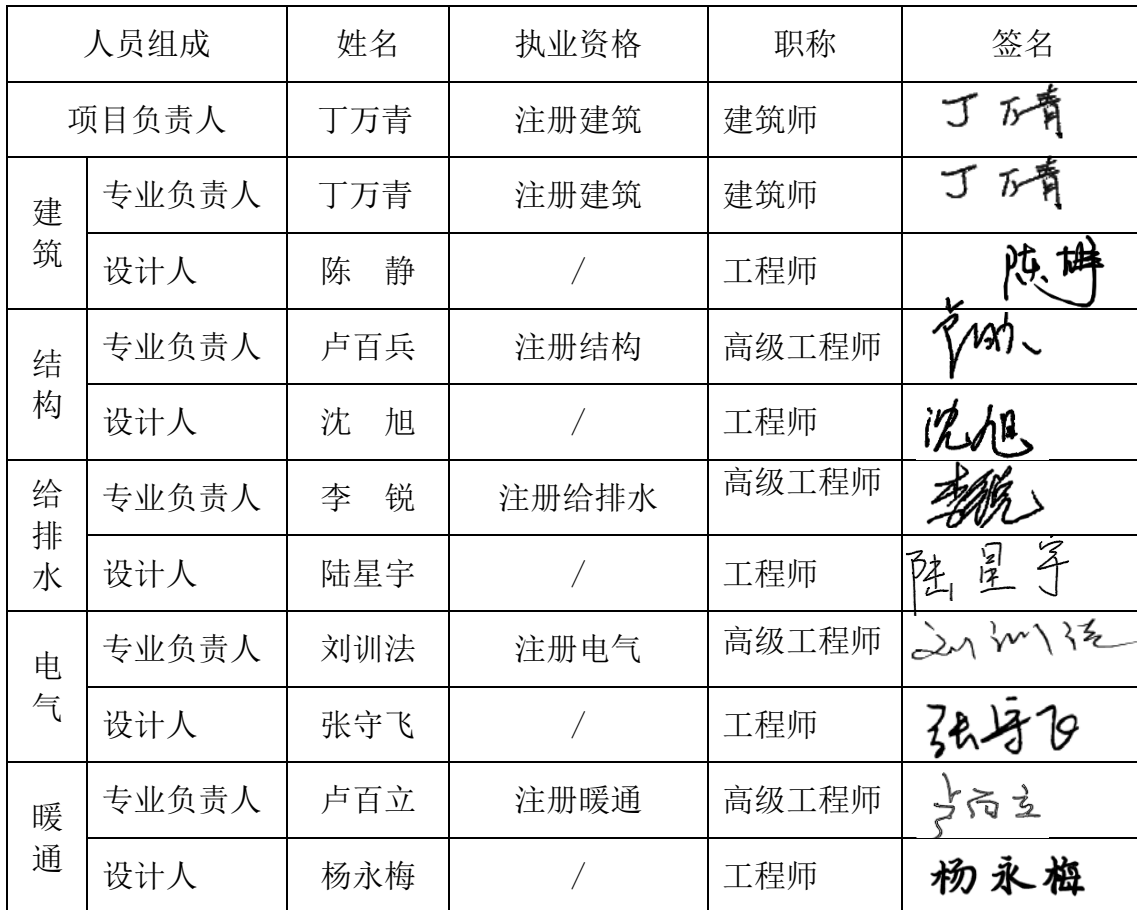 人员组成 姓名 执业资格 职称 签名
项目负责人 丁万青 注册建筑 建筑师 丁万青
建筑 专业负责人 丁万青 注册建筑 建筑师 丁万青
设计人 陈 静 / 工程师 陈静
结构 专业负责人 卢百兵 注册结构 高级工程师
设计人 沈 旭 / 工程师 沈旭
给排水 专业负责人 李 锐 注册给排水 高级工程师 李锐
设计人 陆星宇 / 工程师 陆星宇
电气 专业负责人 刘训法 注册电气 高级工程师 刘训法
设计人 张守飞 / 工程师 张守飞
暖通 专业负责人 卢百立 注册暖通 高级工程师 卢百立
设计人 杨永梅 / 工程师 杨永梅